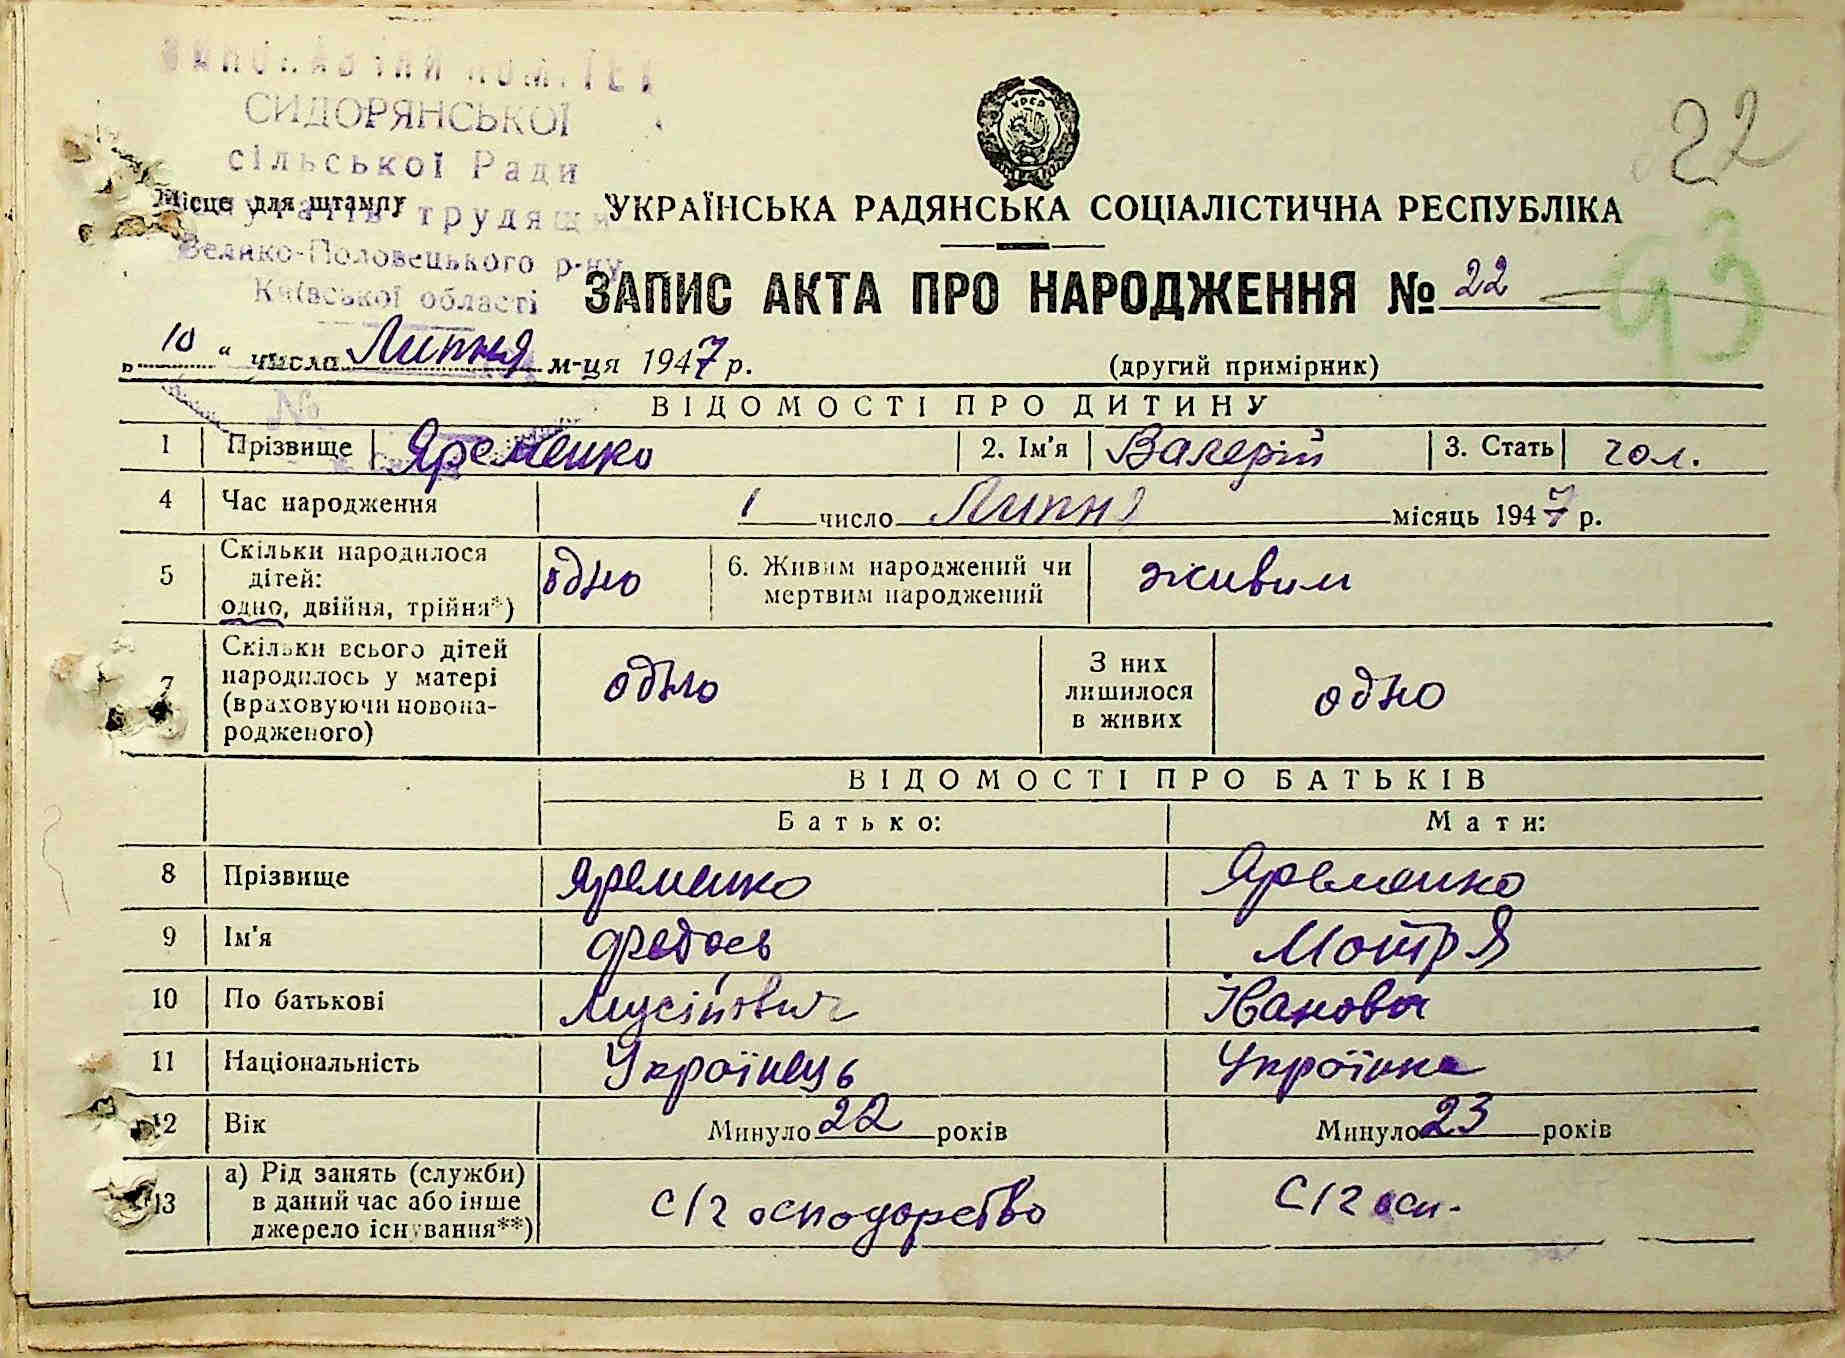 ВИКОНАВЧИЙ КОМІТЕТ
СИДОРЯНСЬКОЇ
сільської Ради
трудящ
Велико-Половецького р-ну
Київської області
Місце для штампу
УРСР
22
93
УКРАЇНСЬКА РАДЯНСЬКА СОЦІАЛІСТИЧНА РЕСПУБЛІКА
ЗАПИС АКТА ПРО НАРОДЖЕННЯ № 22
„ 10 “ числа Липня м-ця 1947 р. (другий примірник)
№
ВІДОМОСТІ ПРО ДИТИНУ
1 Прізвище Яременко 2. Ім'я Валерій 3. Стать чол.
4 Час народження 1 число Липня місяць 1947 р.
5 Скільки народилося дітей: одно, двійня, трійня*) одно 6. Живим народжений чи мертвим народжений живим
7 Скільки всього дітей народилось у матері (враховуючи новона-родженого) одно З них лишилося в живих одно
ВІДОМОСТІ ПРО БАТЬКІВ
Батько: Мати:
8 Прізвище Яременко Яременко
9 Ім'я Федось Мотря
10 По батькові Мусійович Іванови
11 Національність Українець Українка
12 Вік Минуло 22 років Минуло 23 років
13 а) Рід занять (служби) в даний час або інше джерело існування**) С/Господарство С/Госп.